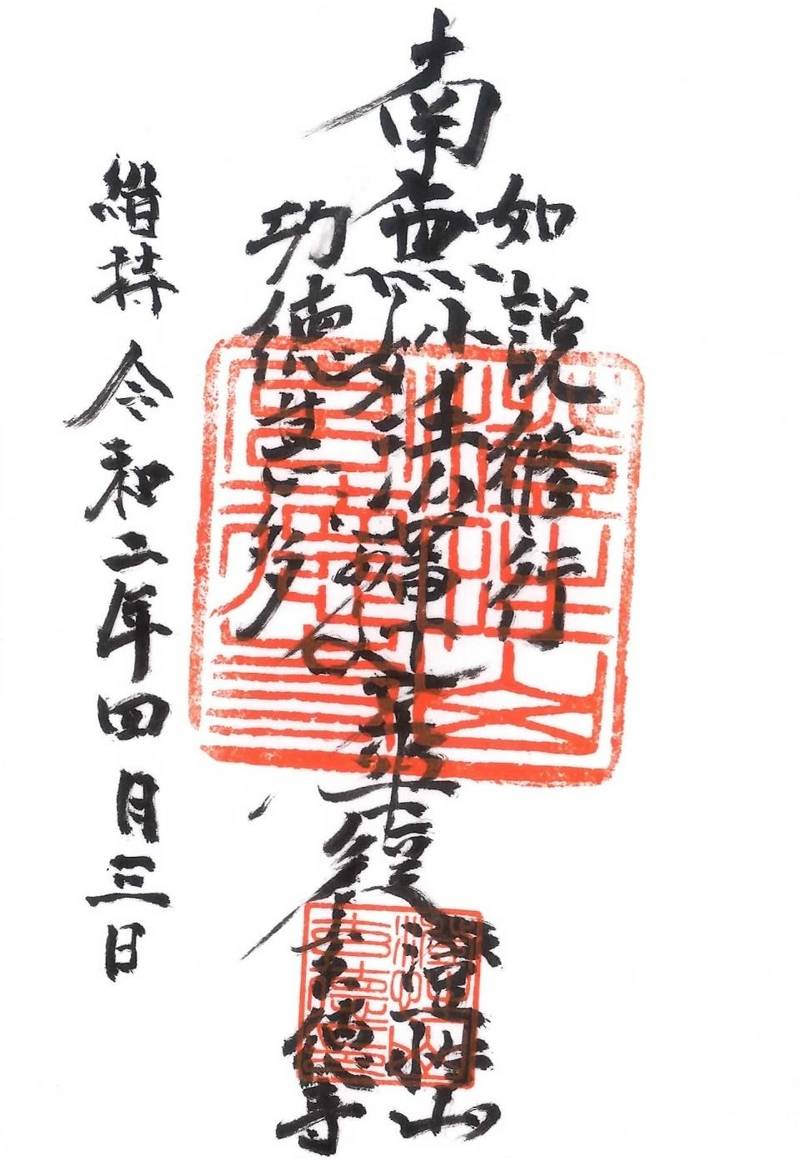 南無妙法蓮華経
如説修行
功徳甚多
持 令和二年四月三日
澄性山
徳寺